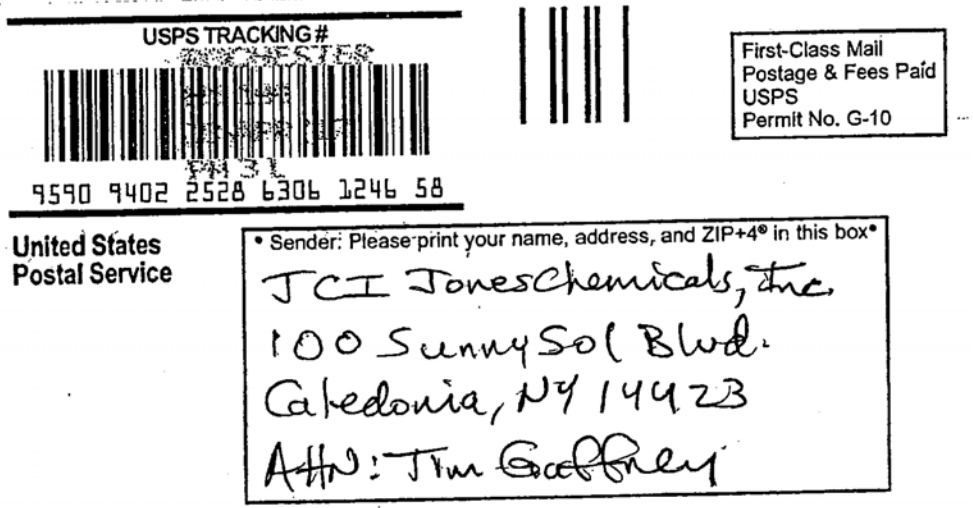 USPS TRACKING #
ROCHESTER
PM 3 L
9590 9402 2528 6306 1246 58
First-Class Mail
Postage & Fees Paid
USPS
Permit No. G-10
United States
Postal Service
• Sender: Please print your name, address, and ZIP+4® in this box•
JCI Jones Chemicals, Inc.
100 Sunny Sol Blvd.
Caledonia, NY 14423
Attn: Jim Gaffney